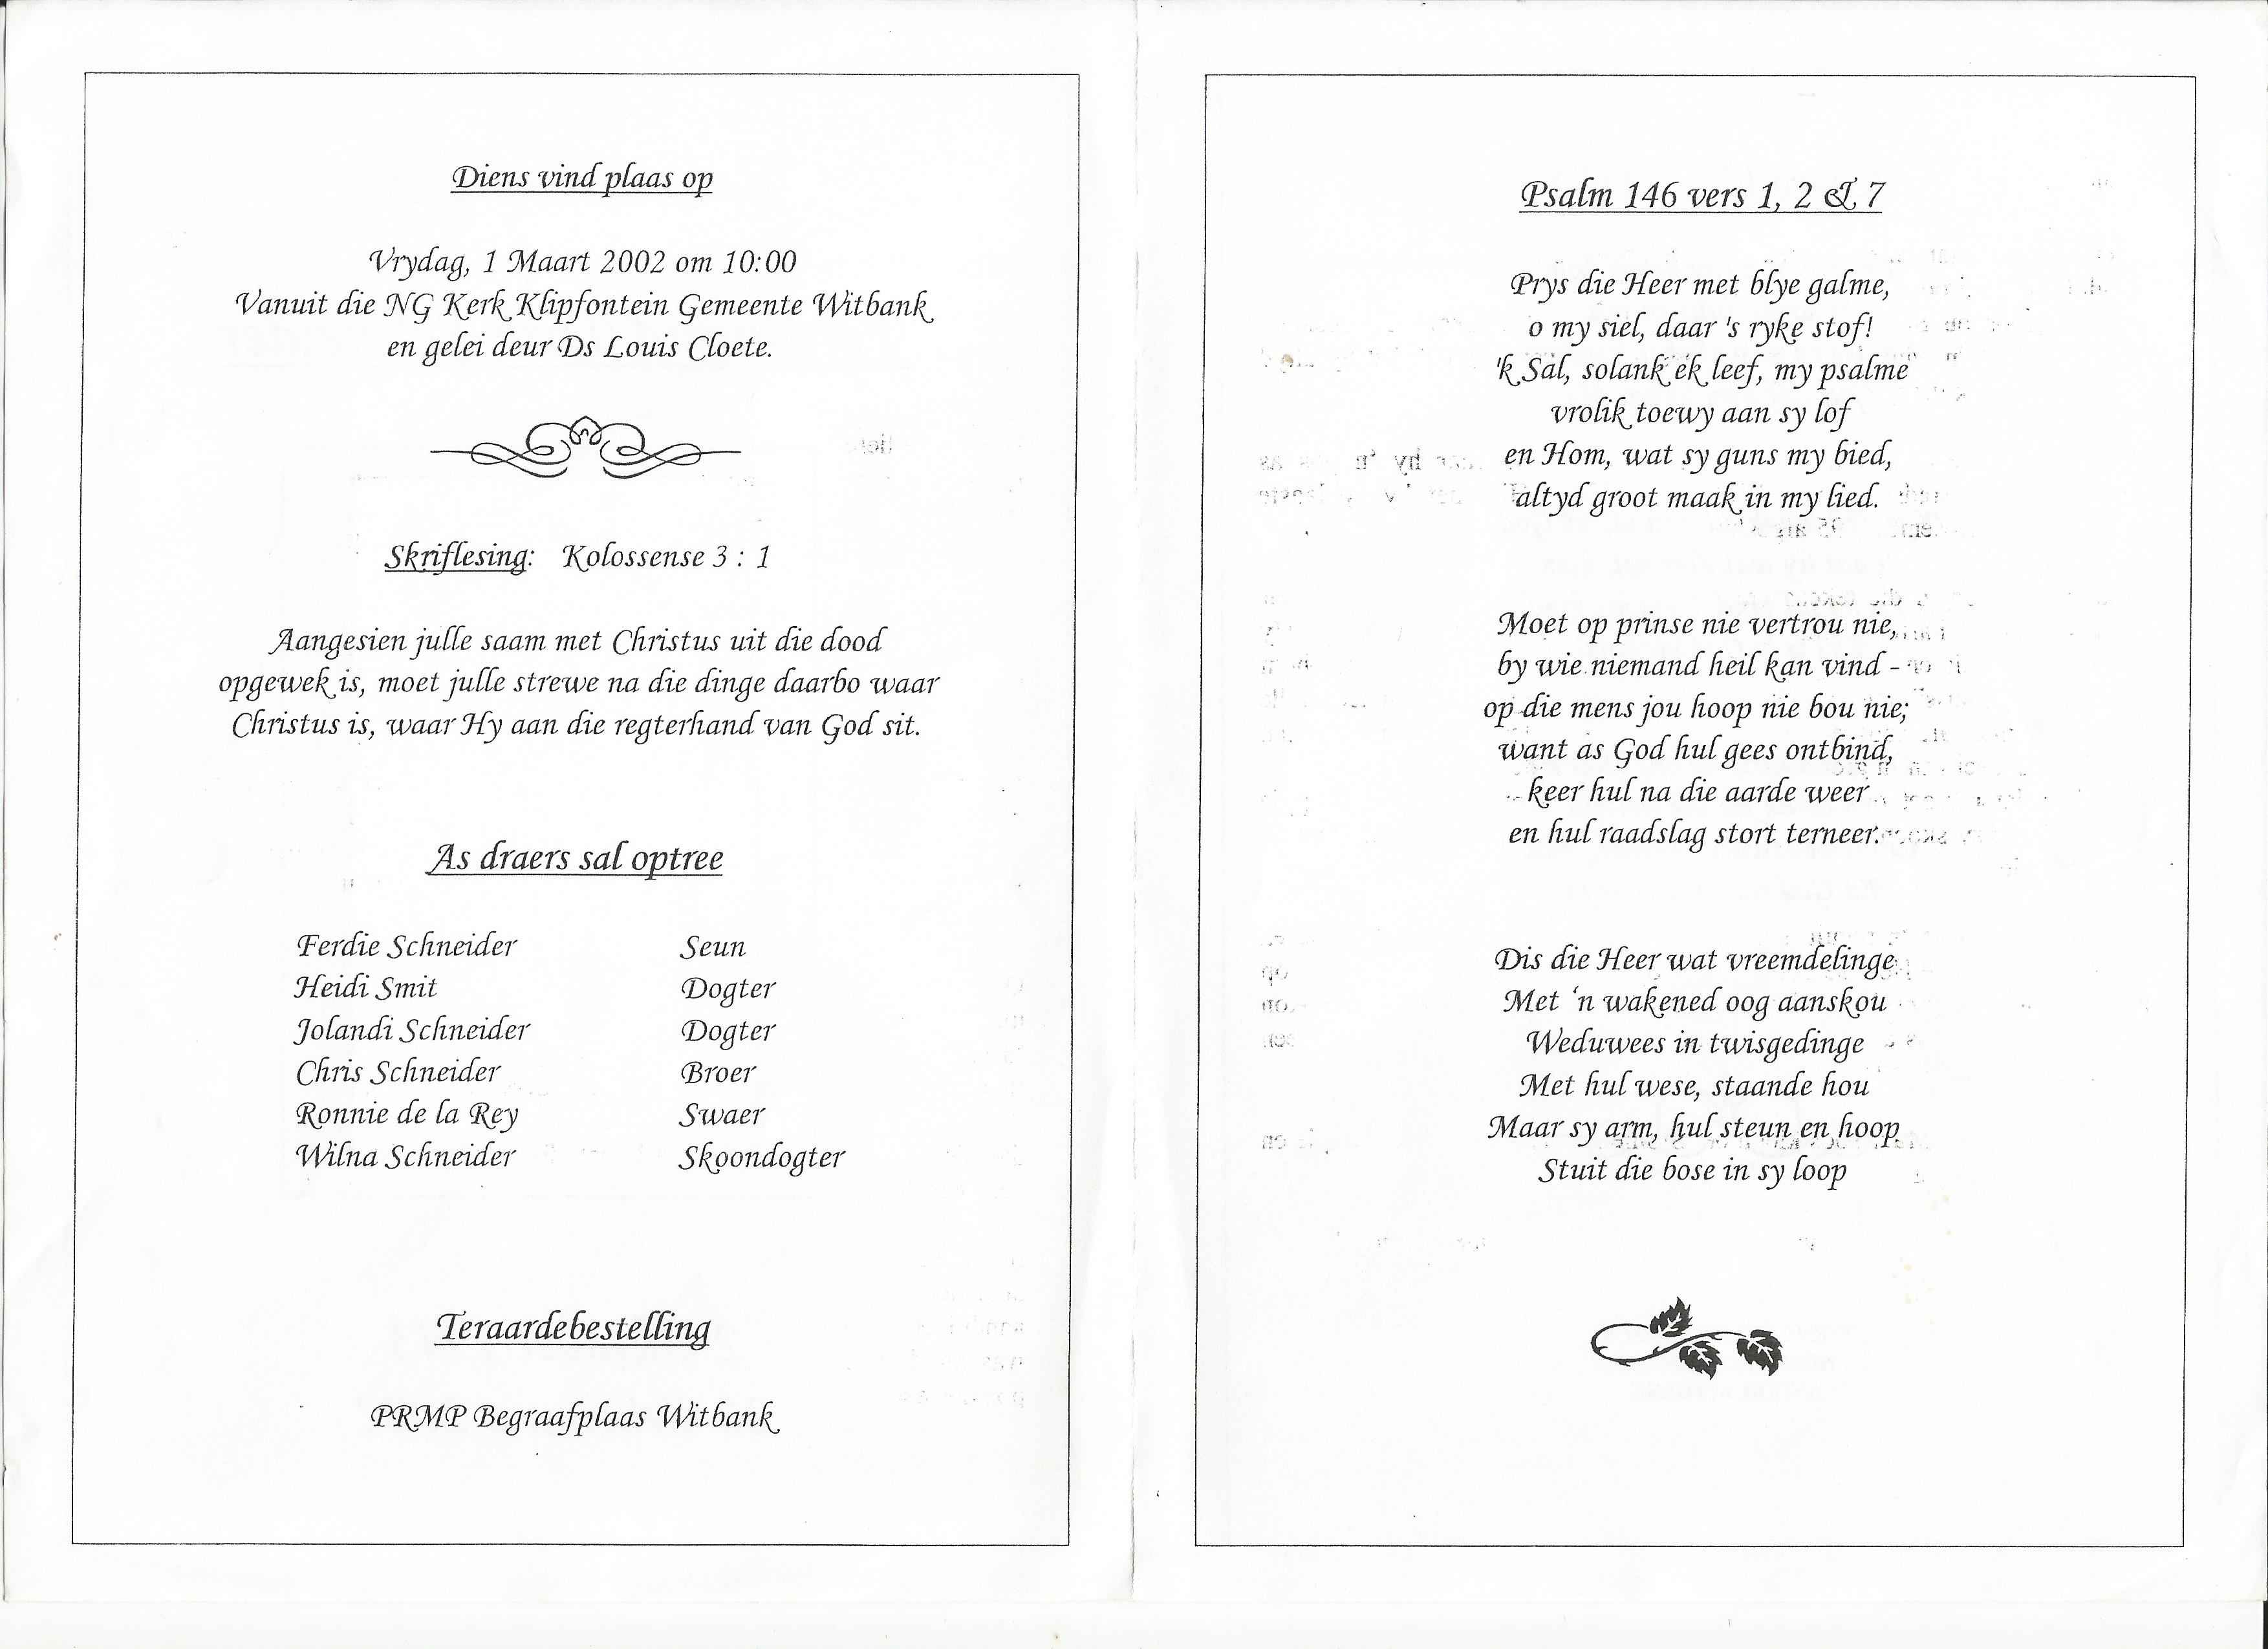 Diens vind plaas op
Vrydag, 1 Maart 2002 om 10:00
Vanuit die NG Kerk Klipfontein Gemeente Witbank
en gelei deur Ds Louis Cloete.
Skriflesing: Kolossense 3 : 1
Aangesien julle saam met Christus uit die dood
opgewek is, moet julle strewe na die dinge daarbo waar
Christus is, waar Hy aan die regterhand van God sit.
As draers sal optree
Ferdie Schneider Seun
Heidi Smit Dogter
Jolandi Schneider Dogter
Chris Schneider Broer
Ronnie de la Rey Swaer
Wilna Schneider Skoondogter
Teraardebestelling
PRMP Begraafplaas Witbank
Psalm 146 vers 1, 2 & 7
Prys die Heer met blye galme,
o my siel, daar 's ryke stof!
'k Sal, solank ek leef, my psalme
vrolik toewy aan sy lof
en Hom, wat sy guns my bied,
altyd groot maak in my lied.
Moet op prinse nie vertrou nie,
by wie niemand heil kan vind -
op die mens jou hoop nie bou nie;
want as God hul gees ontbind,
keer hul na die aarde weer
en hul raadslag stort terneer.
Dis die Heer wat vreemdelinge
Met ‘n wakened oog aanskou
Weduwees in twisgedinge
Met hul wese, staande hou
Maar sy arm, hul steun en hoop
Stuit die bose in sy loop